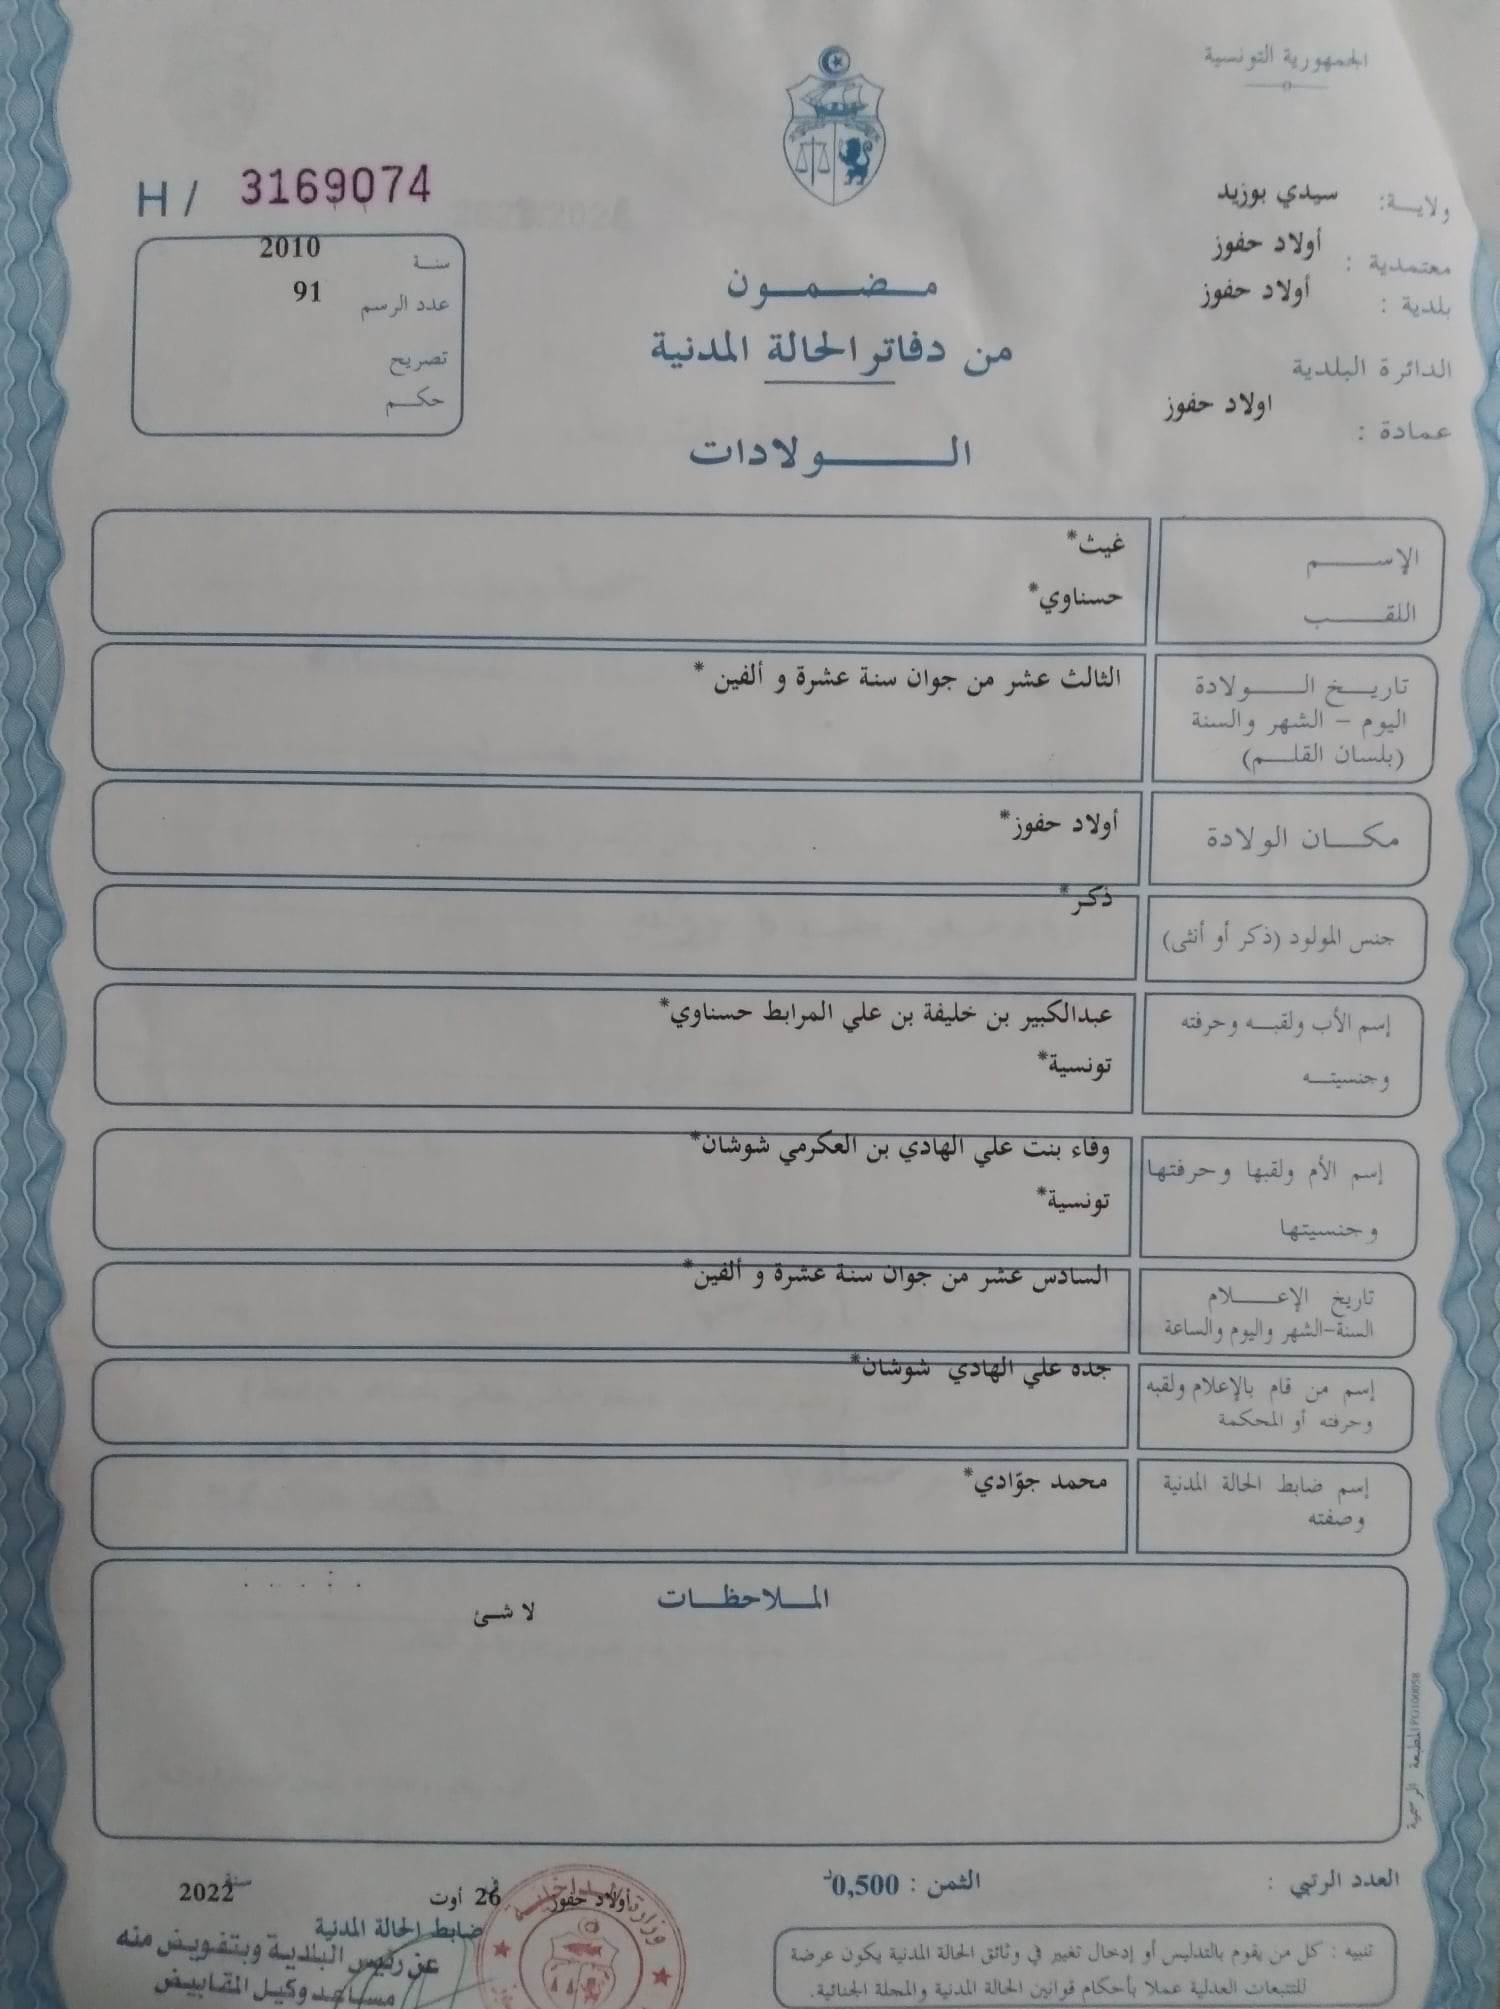 الجمهورية التونسية
ولايـة: سيدي بوزيد
معتمدية : أولاد حفوز
بلدية : أولاد حفوز
الدائرة البلدية
عمادة : اولاد حفوز
H / 3169074
سنـة 2010
عدد الرسم 91
تصريح
حكـم
مـضـمـون
من دفاتر الحالة المدنية
الـولادات
الإسـم غيث*
اللقـب حسناوي*
تاريـخ الـولادة الثالث عشر من جوان سنة عشرة و ألفين *
اليوم - الشهر والسنة
(بلسان القلـم)
مكـان الولادة أولاد حفوز*
جنس المولود (ذكر أو أنثى) ذكر*
إسم الأب ولقبـه وحرفته عبدالكبير بن خليفة بن علي المرابط حسناوي*
وجنسيتـه تونسية*
إسم الأم ولقبها وحرفتها وفاء بنت علي الهادي بن العكرمي شوشان*
وجنسيتها تونسية*
تاريخ الإعـلام السادس عشر من جوان سنة عشرة و ألفين*
السنة-الشهر واليوم والساعة
إسم من قام بالإعلام ولقبه جده علي الهادي شوشان*
وحرفته أو المحكمة
إسم ضابط الحالة المدنية محمد جوّادي*
وصفته
المـلاحظـات
لا شئ
المطبعة الرسمية PG100058
العدد الرتبي :
الثمن : 0,500د
أولاد حفوز في 26 أوت سنة 2022
ضابط الحالة المدنية
عن رئيس البلدية وبتفويض منه
مساعد وكيل المقابيض
وزارة الداخلية
تنبيه : كل من يقوم بالتدليس أو إدخال تغيير في وثائق الحالة المدنية يكون عرضة
للتتبعات العدلية عملا بأحكام قوانين الحالة المدنية والمجلة الجنائية.